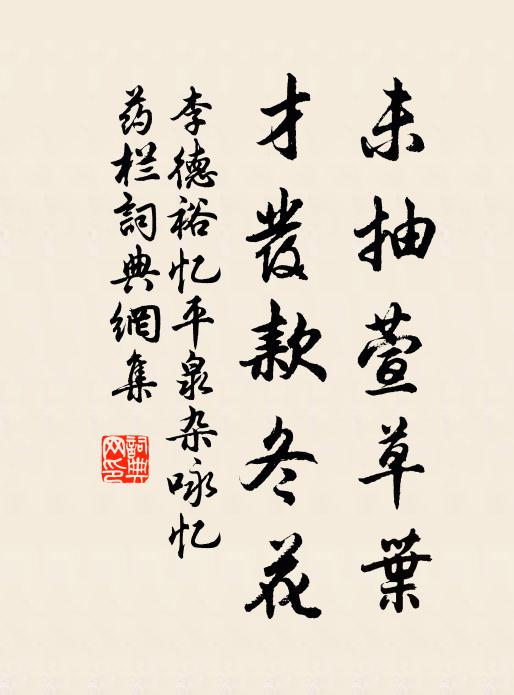 未抽萱草葉
才發款冬花
李德裕忆平泉杂咏忆
药栏詞典網集
詞典网印